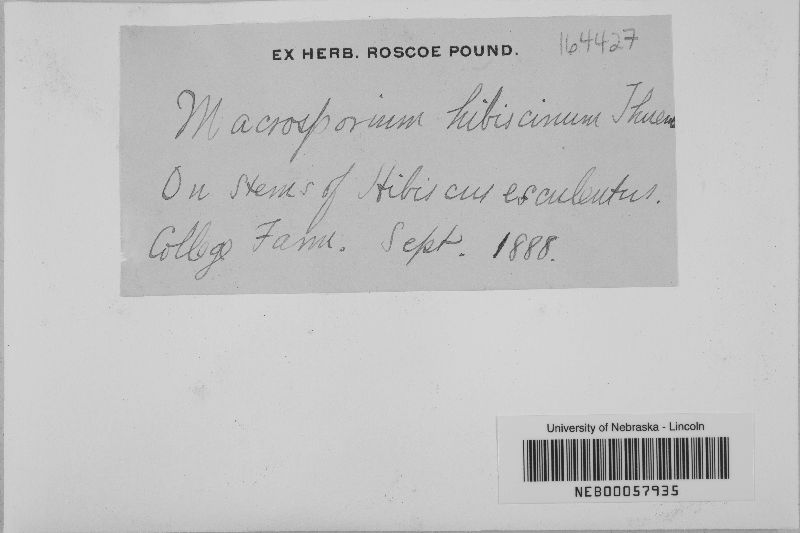 EX HERB. ROSCOE POUND.
164427
Macrosporium hibiscinum Thuem
On stems of Hibiscus esculentus.
College Farm. Sept. 1888.
University of Nebraska - Lincoln
NEB00057935